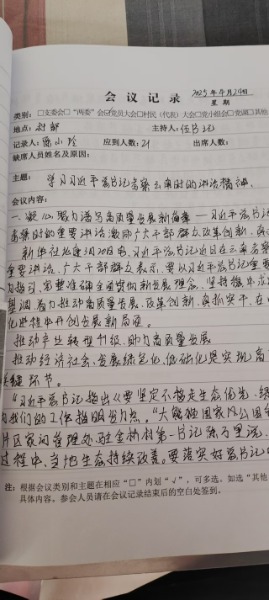 会议记录
2025年4月29日
星期
类别：□支委会□“两委”会□党员大会□村民（代表）大会□党小组会□党课□其他
地点：村部 主持人：伍书记
记录人： 应到人数：21 出席人数：
缺席人员姓名及原因：
主题： 学习习近平总书记考察云南时的讲话精神
会议内容：
一、凝心聚力谱写高质量发展新篇章——习近平总书记
考察时的重要讲话激励广大干部群众改革创新、
新华社昆明20日电 习近平总书记近日在云南考察
重要讲话，广大干部群众表示，要以习近平总书记重要
为指引，完整准确全面贯彻新发展理念，坚持稳中求进
基调 着力推动高质量发展、改革创新、真抓实干，在中
化进程中开创发展新局面。
推动产业转型升级，助力高质量发展
推动经济社会发展绿色化、低碳化是实现高
关键环节。
“习近平总书记指出《要坚定不移走生态优先、绿
为我们的工作指明方向。”大熊猫国家公园
片区 管理处驻金桥村第一书记
过程中，当地生态持续改善。要落实好总书记
注：根据会议类别和主题在相应“□”内划“√”，可多选，如选“其他
具体内容。参会人员请在会议记录结束后的空白处签到。